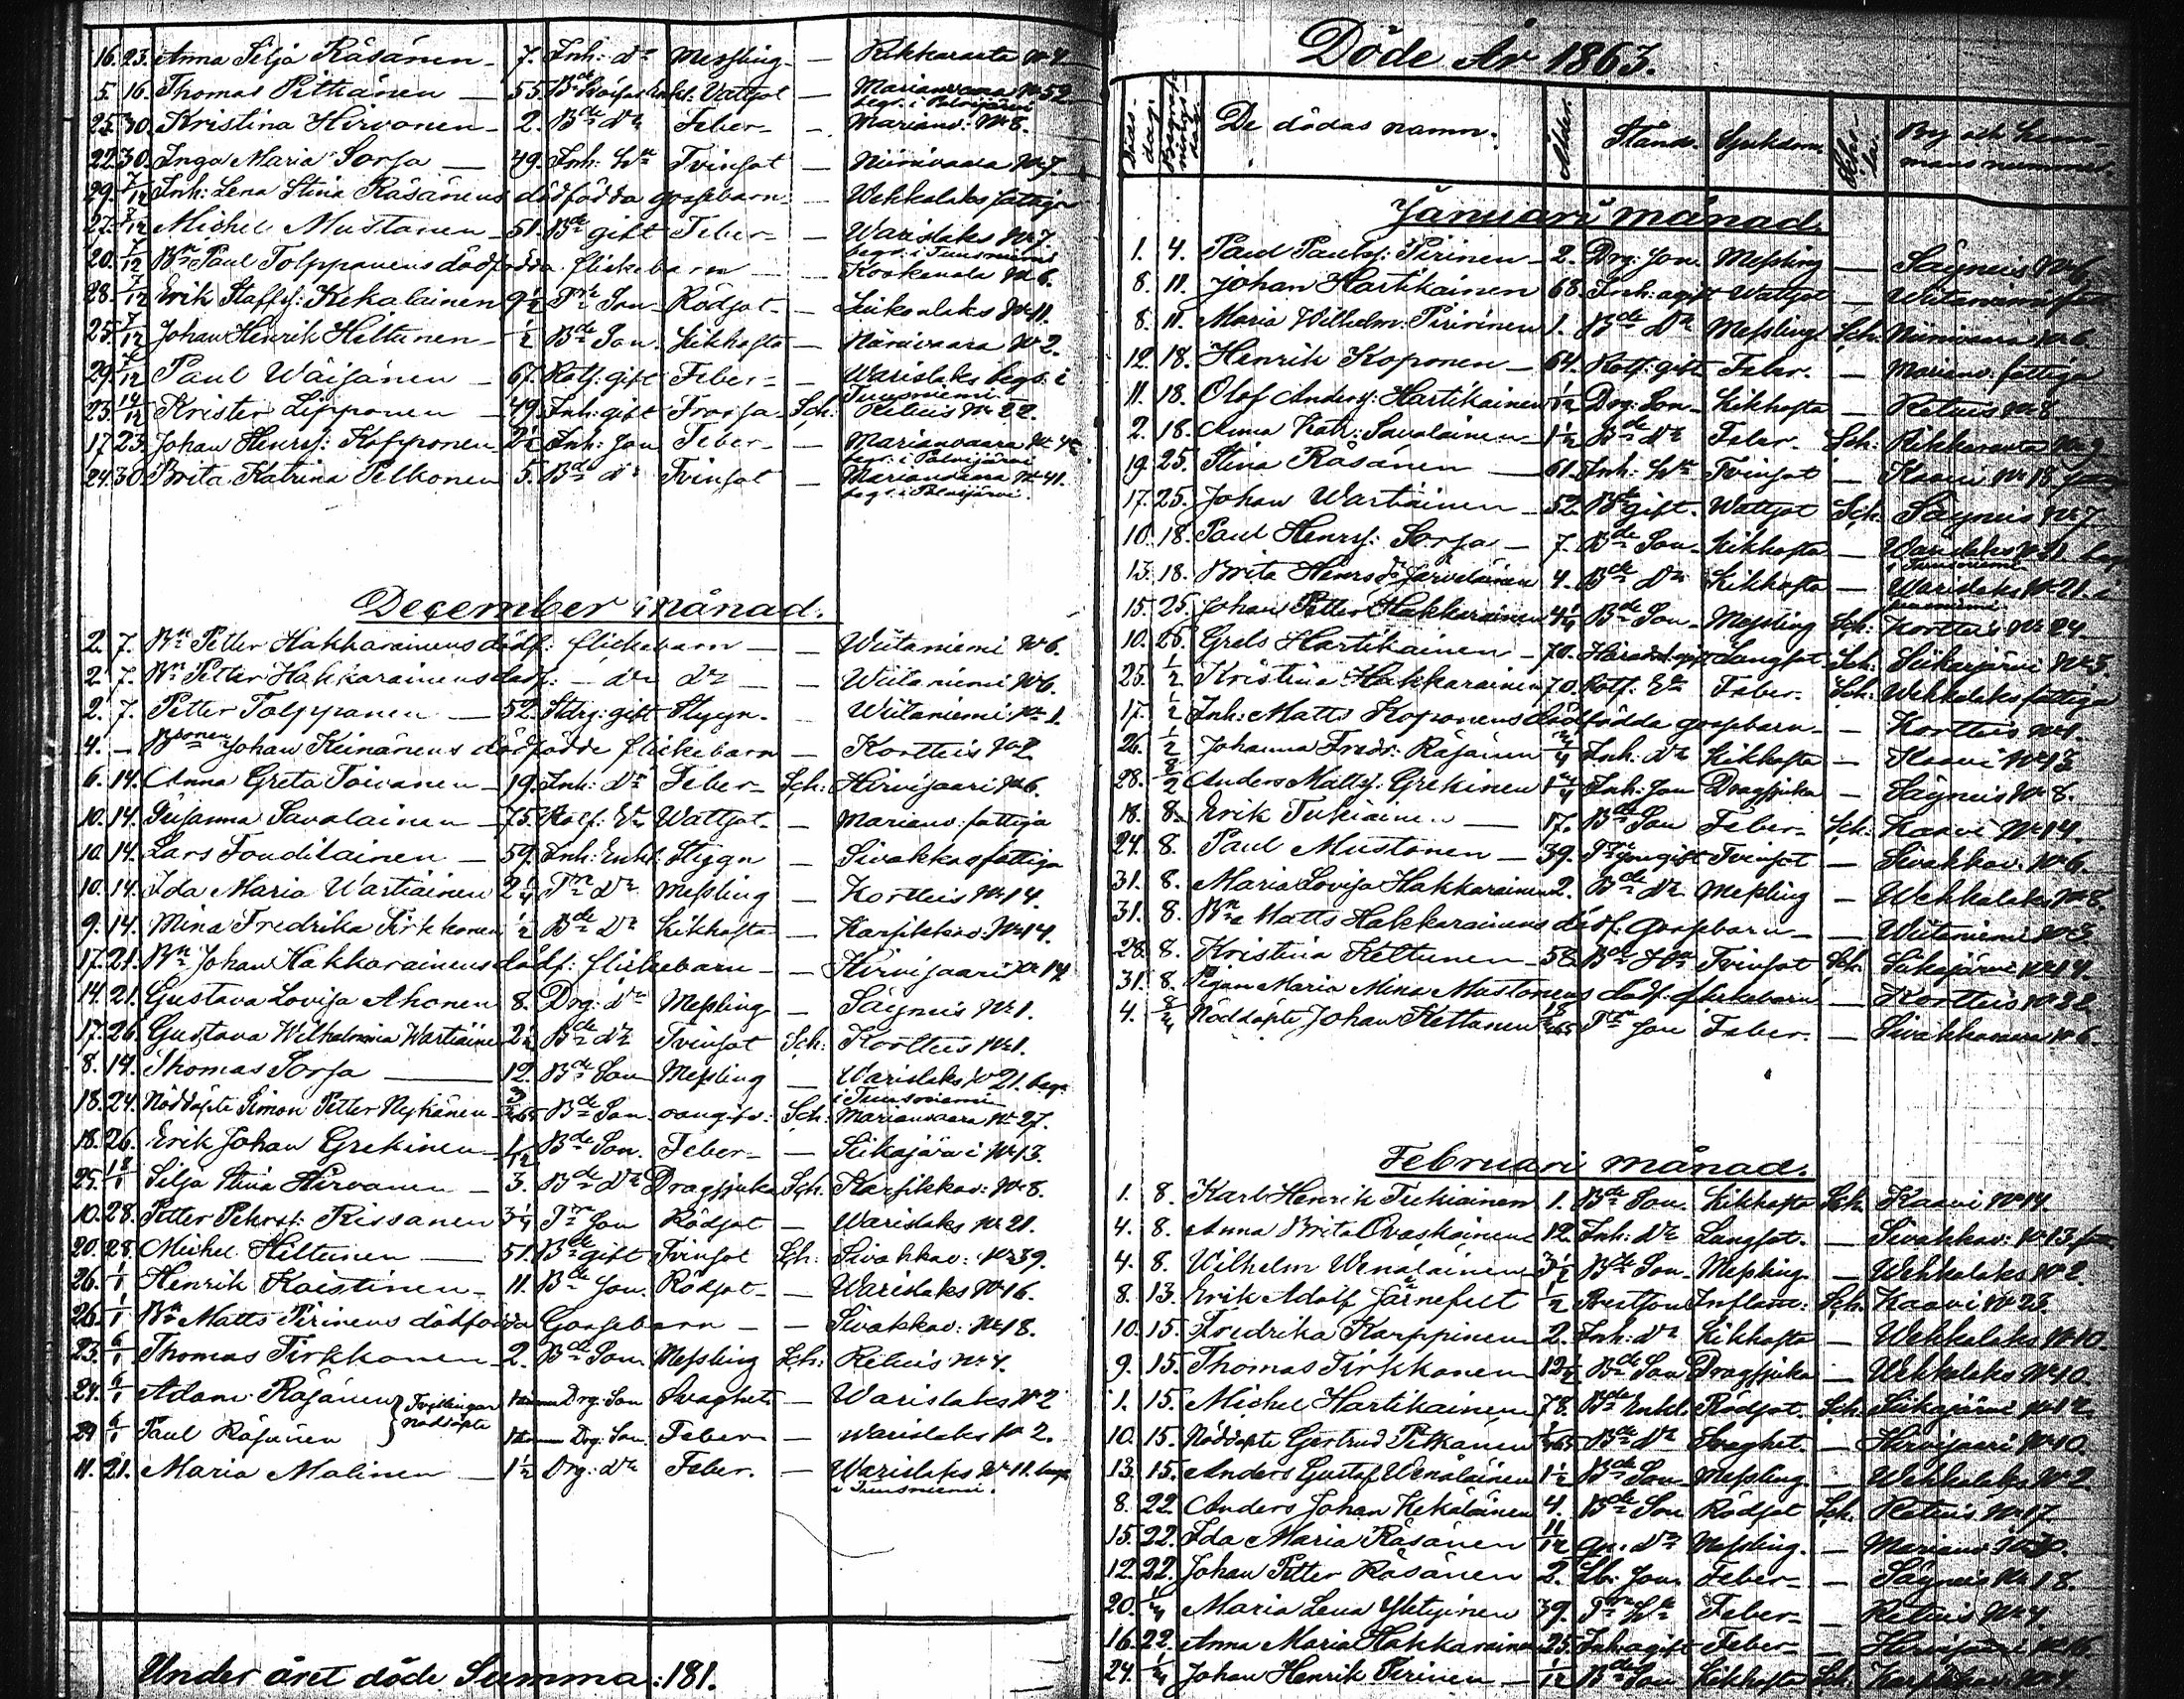 16. 23. Anna Silja Räsänen - 7. Inh: dr Messling - Rikkaranta No 4
5. 16. Thomas Pittiänen - 55. Vattsot - Marianvaara No 52 begr. i Polvijärvi
25. 30. Kristina Hirvonen - 2. Bde dr Feber - Marianv: No 8.
22. 30. Inga Maria Sorsa - 49. Inh: Hu Tvinsot - Niinivaara No 7.
29. 7/12 Inh: Lena Stina Räsänens dödfödda gossebarn - Wehkalaks fattiga
27. 7/12 Michel Mustonen - 51. Bde gift Feber - Warislaks No 7. begr. i Tuusniemi
20. 7/12 Bn Paul Tolppanens dödfödda flickebarn - Kookenala No 6.
28. 7/12 Erik Staffs: Kekäläinen 9 1/2 Tn Son Rödsot - Luikonlaks No 11.
25. 7/12 Johan Henrik Hiltunen - 1/2 Bde Son Kikhosta - Niinivaara No 2.
29. 7/12 Paul Wäisänen - 67. Rotf: gift Feber - Warislaks begr. i Tuusniemi
23. 14/12 Krister Lipponen - 49. Inh: gift Frossa Sch: Retuis No 22.
17. 23. Johan Henrs: Kopponen 2 1/2 Inh: Son Feber - Marianvaara No 42 begr: i Polvijärvi
24. 30. Brita Katrina Pelkonen 5. Bde dr Tvinsot - Marianvaara No 41. begr. i Polvijärvi.
December månad.
2. 7. Bn Petter Hakkarainens dödf: flickebarn - - Wiitaniemi No 6.
2. 7. Bn Petter Hakkarainens dödf: - dr dr - - Wiitaniemi No 6.
2. 7. Petter Tolppanen - 52. Stdrg: gift Stygn. Wiitaniemi No 1.
4. - Bonen Johan Keinänens dödfödde flickebarn - Kortteis No 2
6. 14. Anna Greta Toivanen - 19. Inh: dr Feber - Sch: Hirvisaari No 6.
10. 14. Susanna Savolainen - 75. Rotf: Ea Wattsot. - Marianv: fattiga
10. 14. Lars Tondilainen - 59. Inh: Enkl: Stygn - Sivakkav fattiga
10. 14. Ida Maria Wartiainen 2 1/4 Tn dr Messling - Kortteis No 14.
9. 14. Mina Fredrika Tirkkonen 1/2 Bde dr Kikhosta - Karsikkov: No 14.
17. 21. Bn Johan Hakkarainens dödf: flickebarn - - Hirvisaari No 14
14. 21. Gustava Lovisa Ahonen 8. Drg: dr Messling - Säyneis No 1.
17. 26. Gustava Wilhelmina Wartiäinen 2 1/2 Bde dr Tvinsot Sch: Kortteis No 1.
8. 14. Thomas Sorsa - 12. Bde Son Messling - Warislaks No 21. begr. i Tuusniemi
18. 24. Nöddöpte Simon Petter Nykänen 3/365 Bde Son oangifv: Sch: Marianvaara No 27.
18. 26. Erik Johan Grekinen 1/12 Bde Son. Feber - - Siikajärvi No 13.
25. Silja Stina Hirvonen - 3. Bde dr Dragsjuka Sch. Karsikkov: No 8.
10. 28. Petter Pehrs: Rissanen 3 1/4 Tn Son Rödsot - Warislaks No 21.
20. 28. Michel Hiltunen - 51. Bde gift Tvinsot Sch: Sivakkav: No 39.
26. 1/1 Henrik Koistinen - 11. Bde Son. Rödsot - - Warislaks No 16.
26. 1/1 Bn Matts Pirinens dödfödda Gossebarn - - Sivakkav: No 18.
23. 6/1 Thomas Tirkkonen - 2. Bde Son Messling Sch: Retuis No 4.
24. 6/1 Adam Räsänen } Tvillingar Drg: Son Svaghet - Warislaks No 2
29. 6/1 Paul Räsänen } Nöddöpte Drg: Son. Feber - Warislaks No 2.
11. 21. Maria Malinen - 1 1/2 Drg: dr Feber. - Warislaks No 11. begr. i Tuusniemi.
Under året döde Summa: 181.
Döde År 1863.
Döds-dag. Begrafnings-dag. De dödas namn. Ålder. Stånd. Sjukdom. By och hemmans nummer.
Januari månad.
1. 4. Paul Pauls: Pirinen - 2. Drg: Son. Messling - Säyneis No 6
8. 11. Johan Hartikainen 68. Inh: agift Wattsot - Wiitaniemi
8. 11. Maria Wilhelm: Piririnen 1. Bde Dr Messling Sch: Niinivaara No 6
12. 18. Henrik Koponen - 64. Rotf: gift Feber. - Marianv. fattiga
11. 18. Olof Anders: Hartikainen 1/12 Drg: Son Kikhosta - Retuis No 8
2. 18. Anna Katr: Savolainen 1 1/2 Bde dr Feber. Sch: Rikkaranta No 9
19. 25. Stina Räsänen - 61. Inh: Hu Tvinsot - Kaavi No 18
17. 25. Johan Wartiainen - 52. Bde gift. Wattsot Sch: Säyneis No 7
10. 18. Paul Henrs: Sorsa - 7. Bde Son Kikhosta - Warislaks No 21. begr i Tuusniemi
13. 18. Brita Henrs dr Järveläinen 4. Bde dr Kikhosta - Warislaks No 21. i Tuusniemi
15. 25. Johan Petter Hakkarainen 4 1/4 Bde Son Messling Sch: Kortteis No 24
10. 26. Grels Hartikainen - 70. Härads: gift Lungsot Sch: Siikajärvi No 3.
25. 1/2 Kristina Hakkarainen 70. Rotf: Ea Feber. Sch: Wehkalaks fattiga
17. 1/2 Inh: Matts Koponens dödfödda gossebarn - - Kortteis No 1.
26. 1/2 Johanna Fredr: Räsänen 3/4 Inh: dr Kikhosta - Kaavi No 13
28. 8/2 Anders Matts: Grekinen Inh: Son Dragsjuka - Säyneis No 8.
18. 8. Erik Tukiainen - 17. Bde Son Feber Sch: Kaavi No 14.
24. 8. Paul Mustonen - 39. gift Tvinsot - Sivakkav: No 6.
31. 8. Maria Lovisa Hakkarainen 2. Bde dr Messling - Wehkalaks No 8.
31. 8. Bn Matts Hakkarainens dödf. Gossebarn - - Wiitaniemi No 3
28. 8. Kristina Keltunen 58. Bde Hu Tvinsot Sch. Siikajärvi No 14.
31. 8. Pigan Maria Mina Mustonens dödf. flickebarn - Kortteis No 22
4. Nöddöpte Johan Kettunen Tn Son Feber. - Sivakkavaara No 6
Februari månad.
1. 8. Karl Henrik Tukiainen 1. Bde Son. Kikhosta Sch. Kaavi No 14.
4. 8. Anna Brita Ovaskainen 12. Inh: dr Lungsot. - Sivakkav: No 13.
4. 8. Wilhelm Wenäläinen 3 1/2 Bde Son Messling - Wehkalaks No 2
8. 13. Erik Adolf Järnefelt 1/2 Prestson Inflam: Sch: Kaavi No 23.
10. 15. Fredrika Karppinen 2. Inh: dr Kikhosta - Wehkalaks No 10.
9. 15. Thomas Tirkkonen 12 1/2 Bde Son Dragsjuka - Wehkalaks No 10.
1. 15. Michel Hartikainen 78. Bde Enkl. Rödsot. Sch. Siikajärvi No 12
10. 15. Nöddöpte Gertrud Pitkänen Bde dr Svaghet. - Hirvisaari No 10.
13. 15. Anders Gustaf Wenäläinen 1 1/2 Bde Son Messling - Wehkalaks No 2.
8. 22. Anders Johan Kekäläinen 4. Bde Son Rödsot Sch. Retuis No 17.
15. 22. Ida Maria Räsänen 11/12 dr Messling. - Marianv. No 30.
12. 22. Johan Petter Räsänen 2. Son. Feber - - Säyneis No 18.
20. Maria Lena Yletyinen 39. Tn Hu Feber - - Retuis No 4.
16. 22. Anna Maria Hakkarainen 25. Inh: agift Feber - - Hirvisaari No 16.
24. Johan Henrik Pirinen - 1/12 Bde Son Kikhosta Sch. Karsikkov: No 4